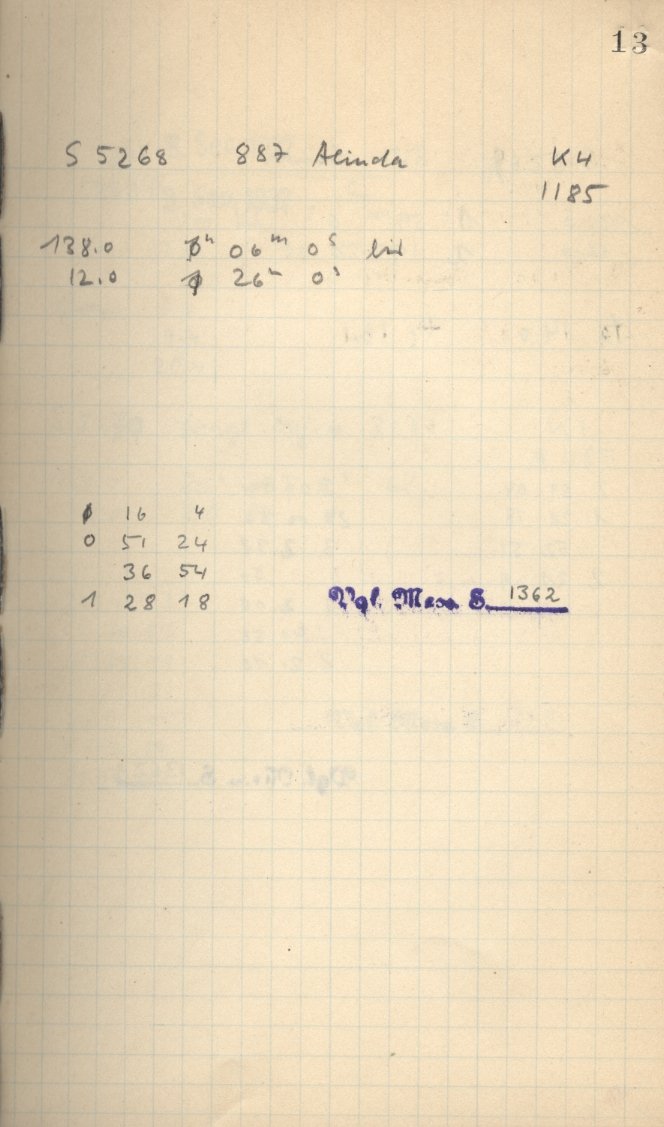 13
S 5268 887 Alinda K4
1185
138.0 06ᵐ 0ˢ bis
12.0 26ᵐ 0ˢ
16 4
0 51 24
36 54
1 28 18
Vgl. Mess. S. 1362